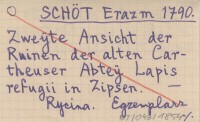 SCHÖT Erazm 1790.
Zweÿte Ansicht der
Ruinen der alten Car-
theuser Abteÿ Lapis
refugii in Zipsen. —
Rycina. Egzemplarz